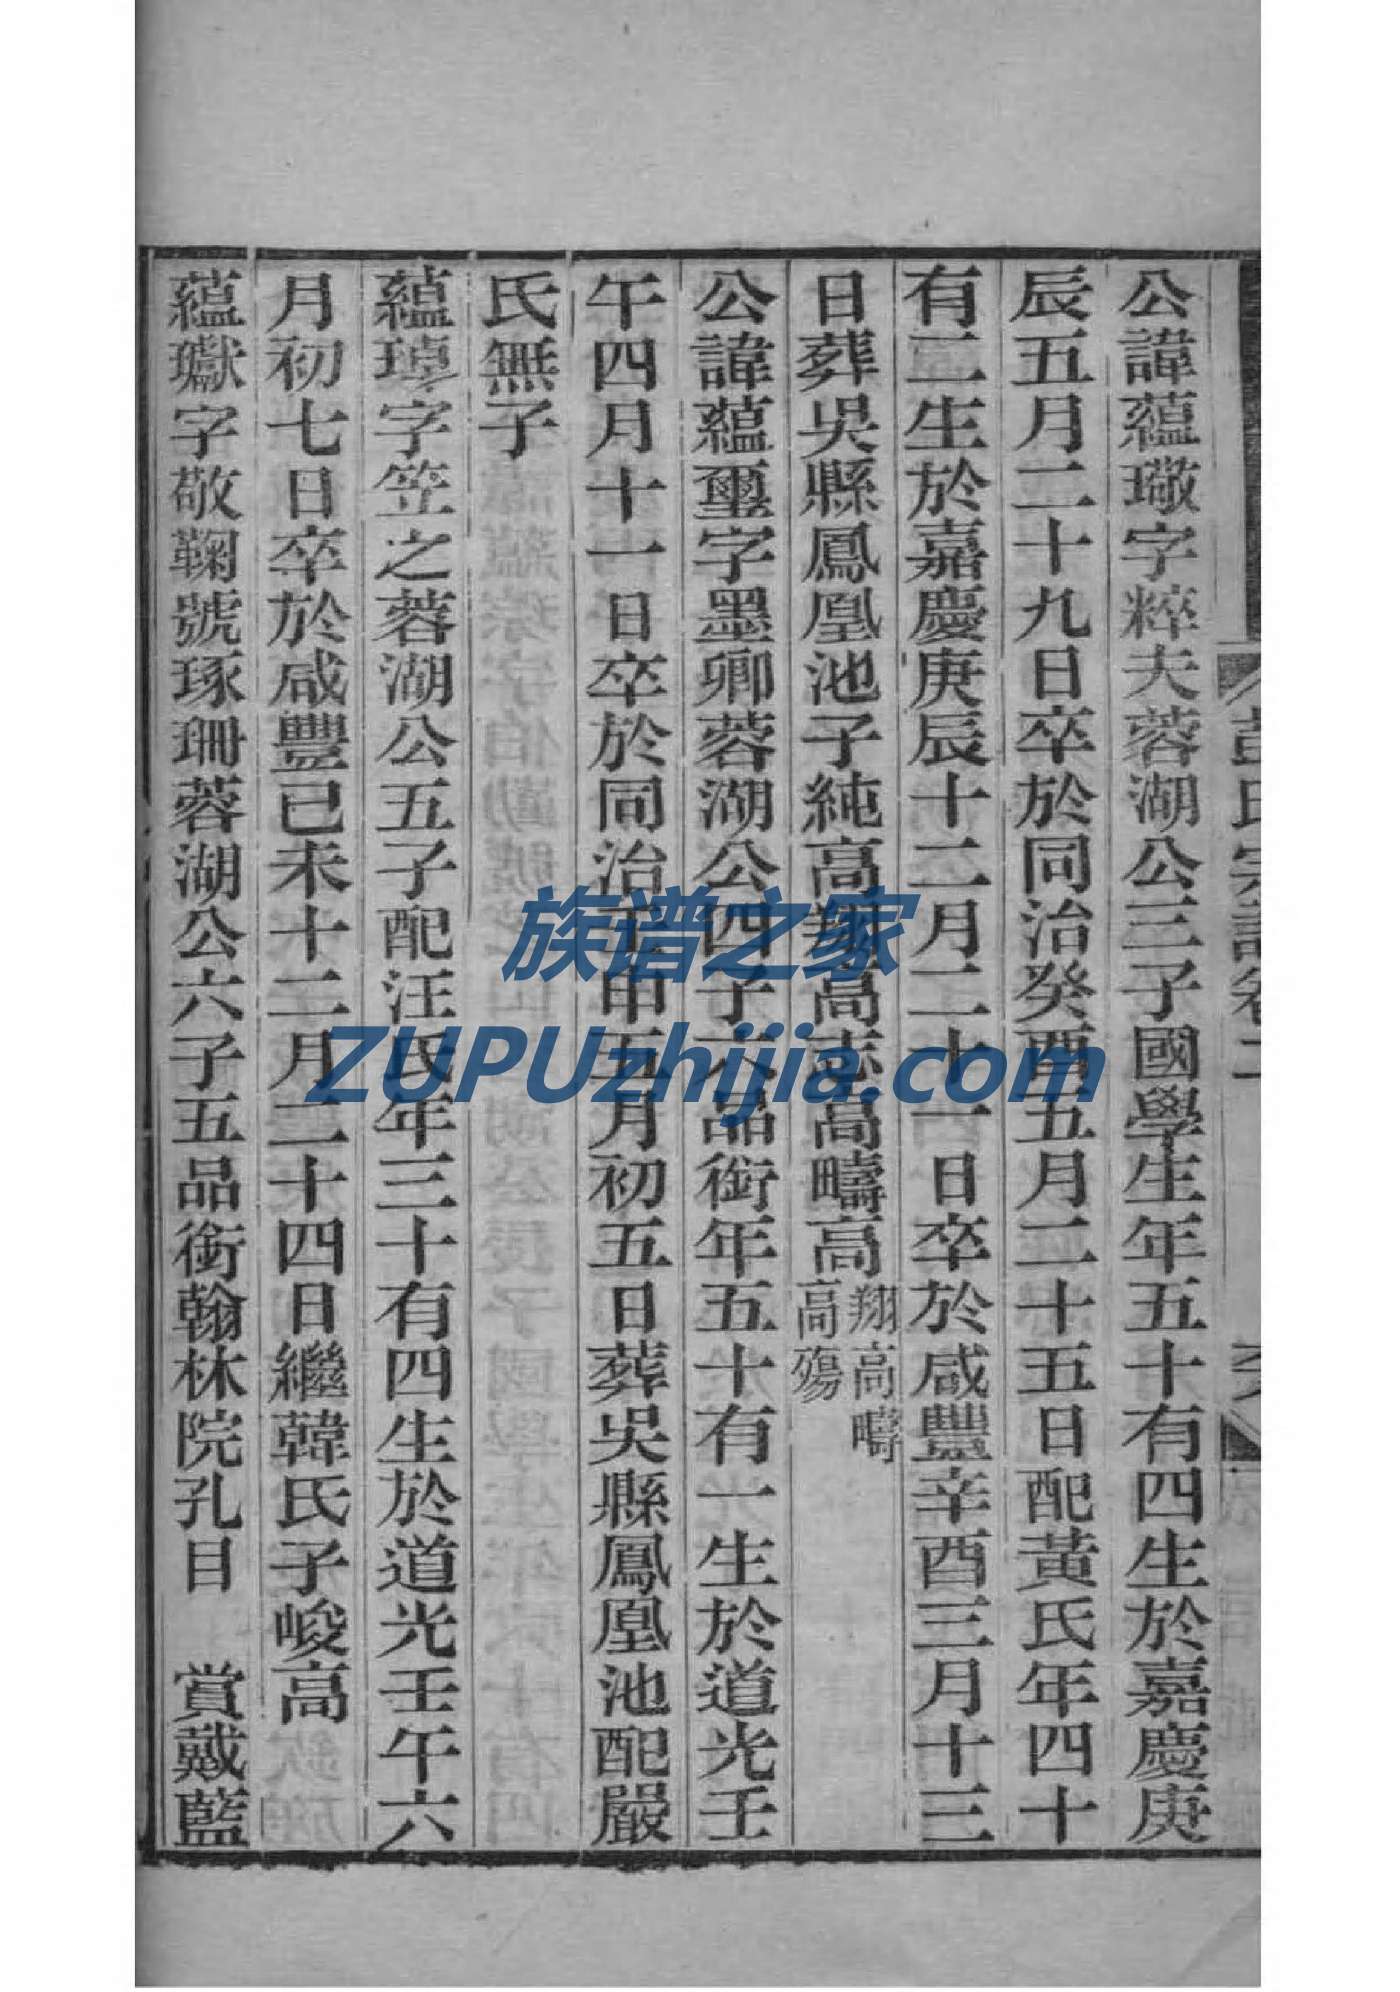 彭氏宗譜卷二
公諱蘊璥字粹夫蓉湖公三子國學生年五十有四生於嘉慶庚
辰五月二十九日卒於同治癸酉五月二十五日配黃氏年四十
有二生於嘉慶庚辰十二月二十一日卒於咸豐辛酉三月十三
日葬吳縣鳳凰池子純高翔高志高疇高
翔高疇
高殤
公諱蘊璽字墨卿蓉湖公四子六品銜年五十有一生於道光壬
午四月十一日卒於同治壬申五月初五日葬吳縣鳳凰池配嚴
氏無子
蘊字笠之蓉湖公五子配汪氏年三十有四生於道光壬午六
月初七日卒於咸豐已未十二月二十四日繼韓氏子峻高
蘊瓛字敬鞠號琢珊蓉湖公六子五品銜翰林院孔目 賞戴藍
族谱之家
ZUPUzhijia.com